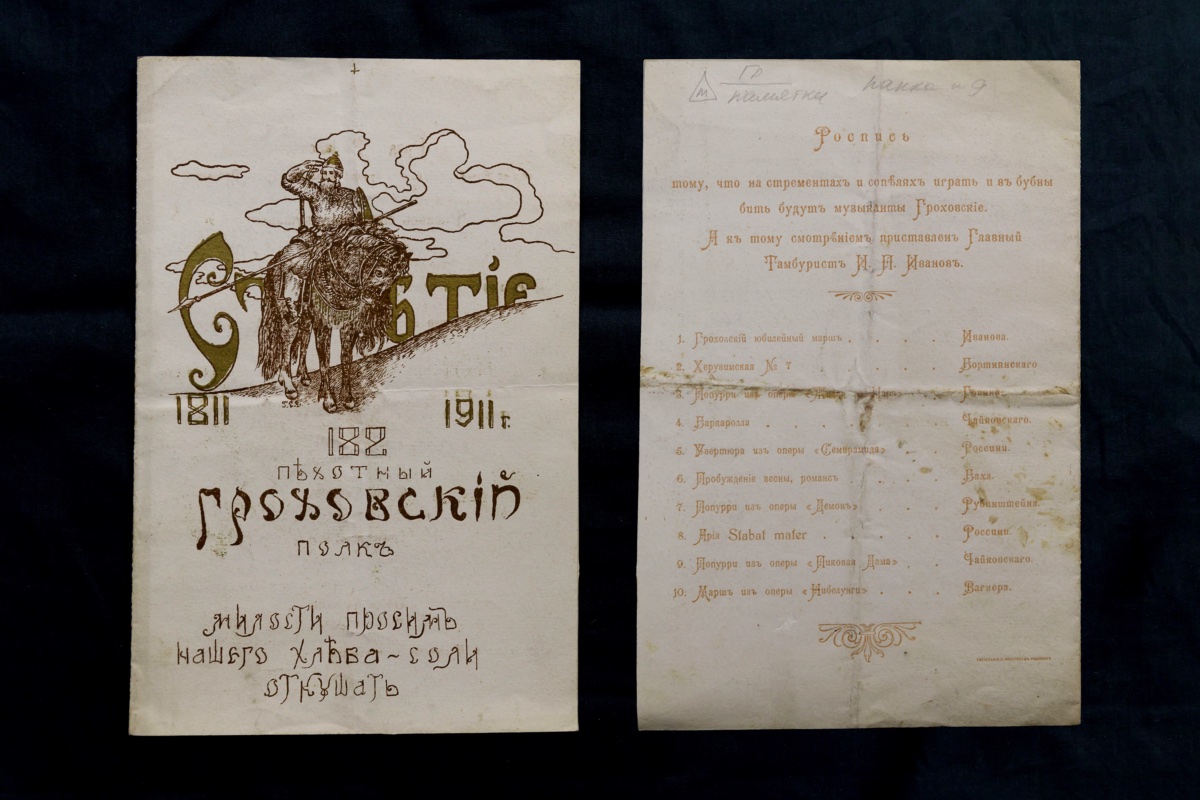 Столѣтіе
1811
1911 г.
182
пѣхотный
Гроховскій
полкъ
милости просимъ
нашего хлѣба-соли
откушать
М
памятки
папка № 9
Роспись
тому, что на стрементахъ и сопѣляхъ играть и въ бубны
бить будутъ музыканты Гроховскіе.
А къ тому смотрѣніемъ приставленъ Главный
Тамбуристъ И. А. Ивановъ.
1. Гроховскій юбилейный маршъ . . . . Иванова.
2. Херувимская № 7 . . . . Бортнянскаго
3. Попурри изъ оперы Глинки.
4. Баркаролла . . . . . Чайковскаго.
5. Увертюра изъ оперы «Семирамида» . . Россини.
6. Пробужденіе весны, романсъ . . . Баха.
7. Попурри изъ оперы «Демонъ» . . . Рубинштейна.
8. Арія Stabat mater . . . . Россини.
9. Попурри изъ оперы «Пиковая Дама» . . Чайковскаго.
10. Маршъ изъ оперы «Нибелунги» . . . Вагнера.